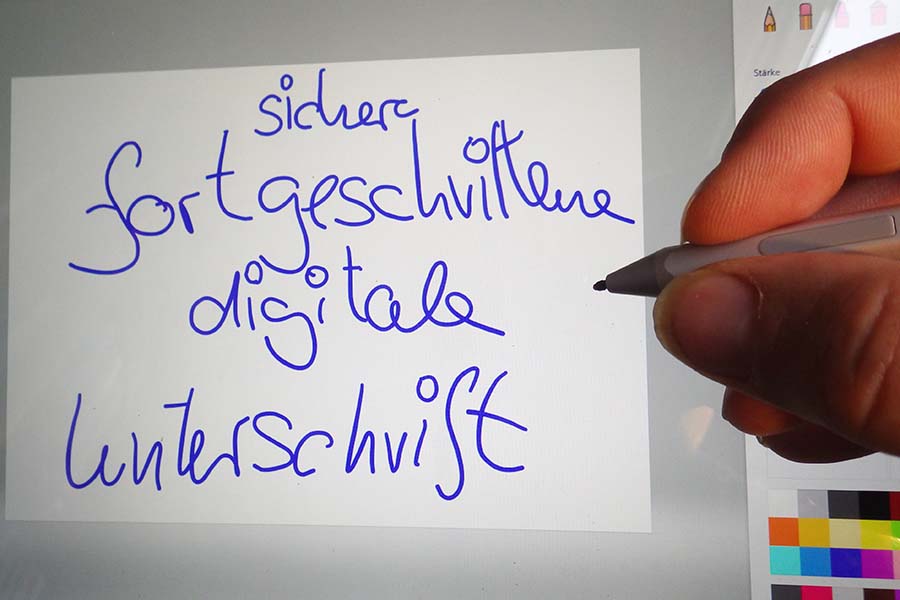 sichere
fortgeschrittene
digitale
Unterschrift
Stärke